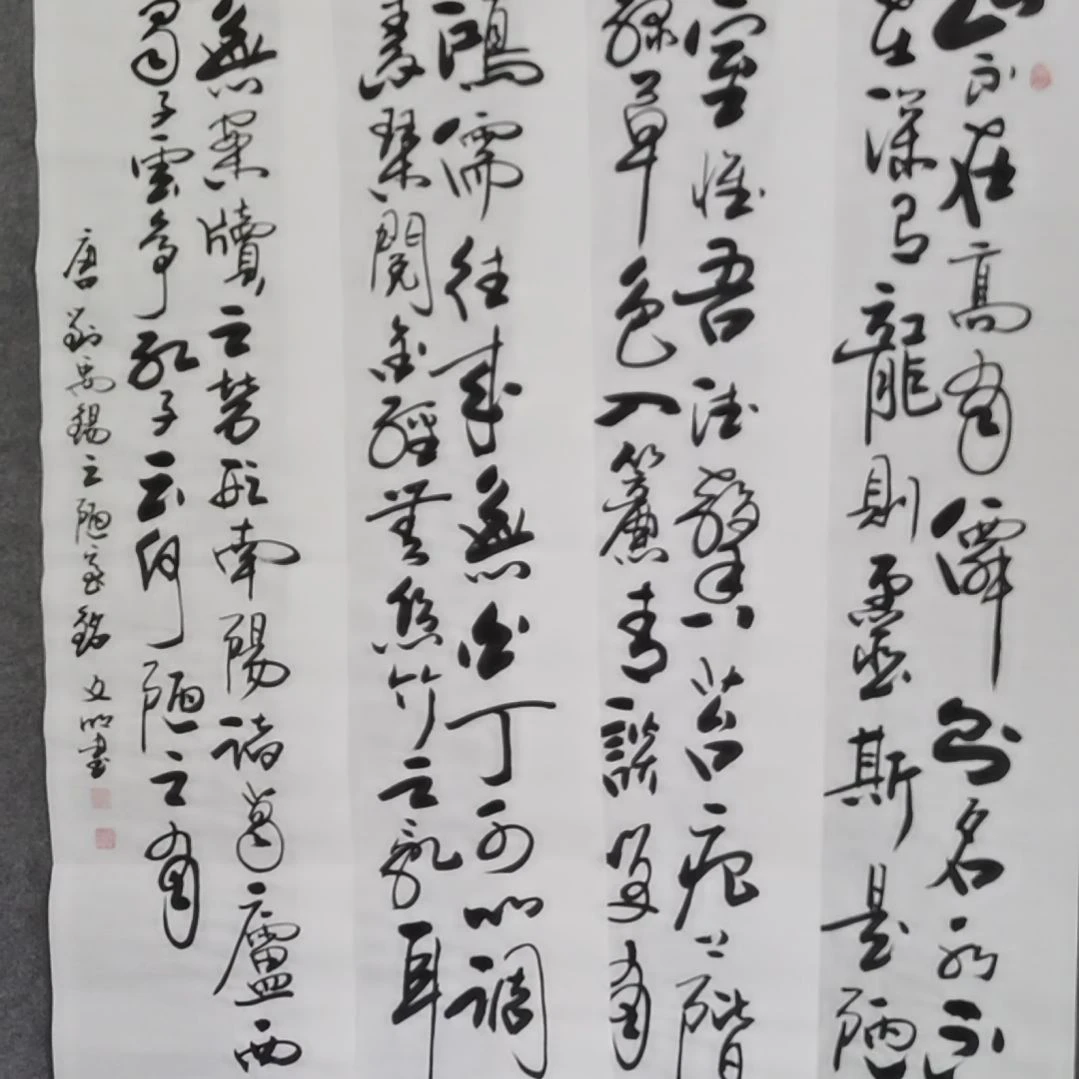 山不在高有僊則名水不
在深有龍則靈斯是陋
室惟吾德馨苔痕上階
綠草色入簾青談笑有
鴻儒往來無白丁可以調
素琴閱金經無絲竹之亂耳
無案牘之勞形南陽諸葛廬西
蜀子雲亭孔子云何陋之有
唐劉禹錫之陋室銘 文明書